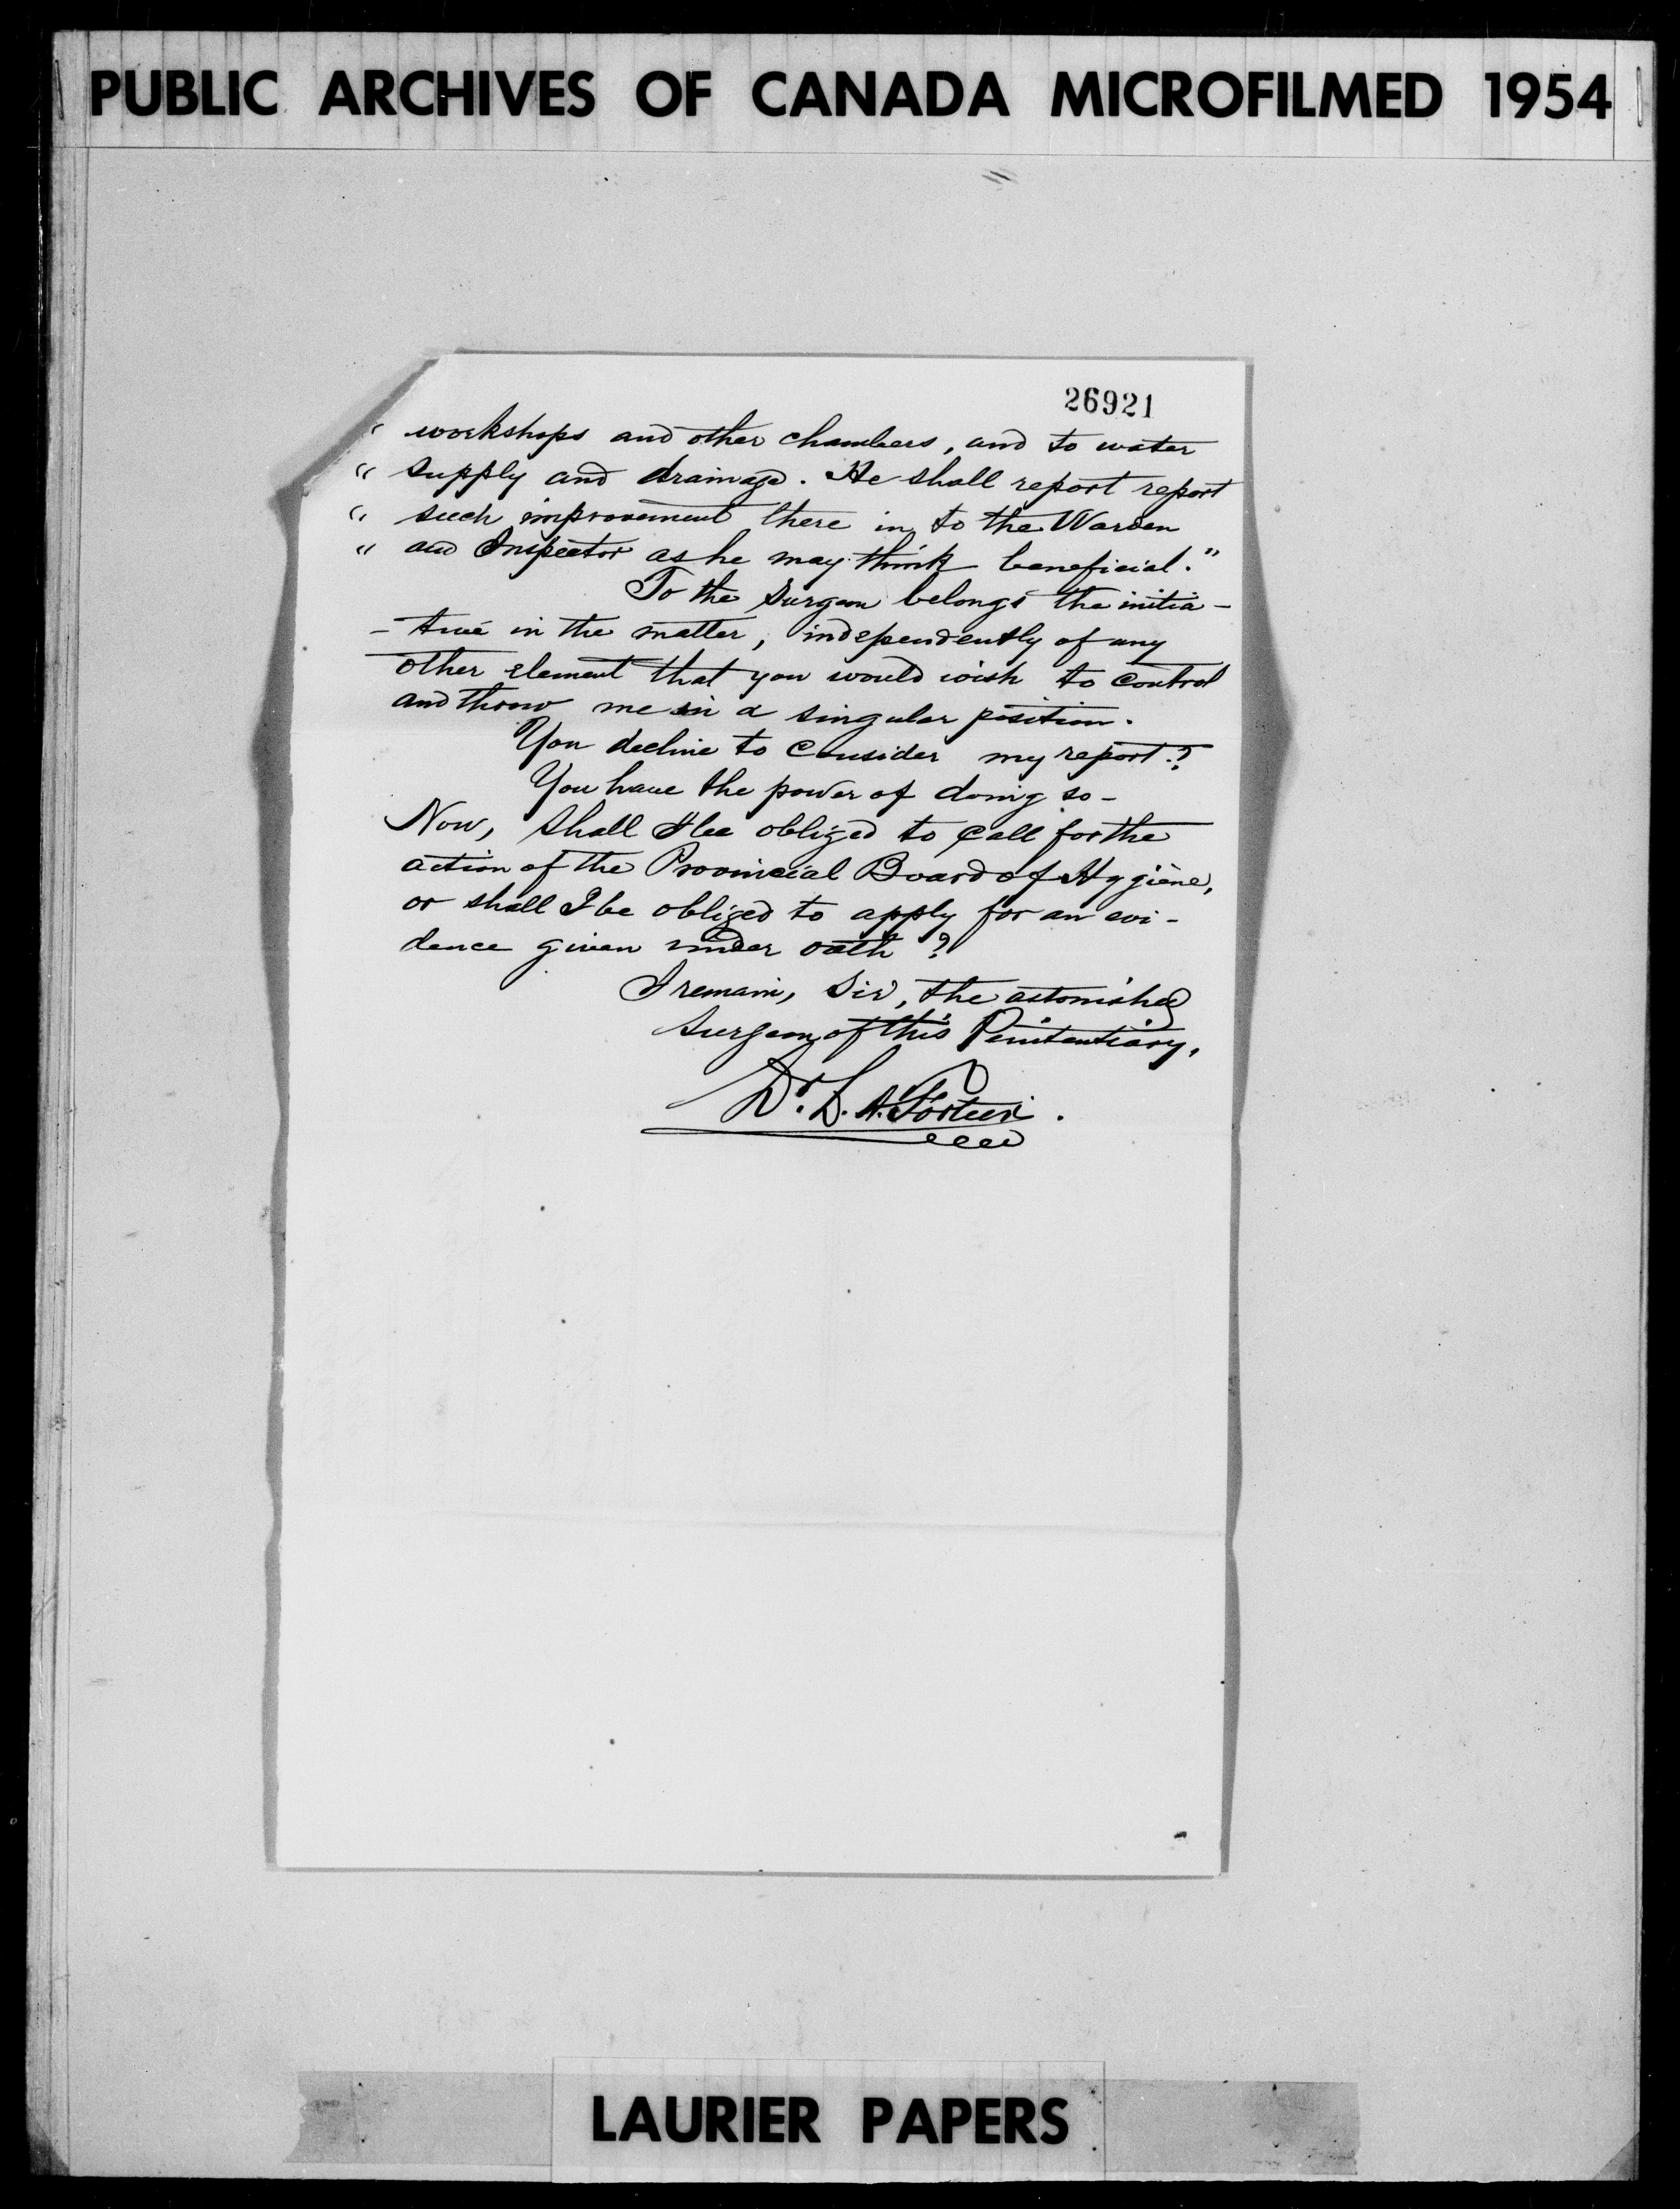 PUBLIC ARCHIVES OF CANADA MICROFILMED 1954
26921
" workshops and other chambers, and to water
" supply and drainage. He shall report report
" such improvement there in to the Warden
" and Inspector as he may think beneficial."
To the Surgeon belongs the initia-
-tive in the matter, independently of any
other element that you would wish to control
and throw me in a singular position.
You decline to consider my report.?
You have the power of doing so-
Now, shall I be obliged to call for the
action of the Provincial Board of Hygiène,
or shall I be obliged to apply for an evi-
dence given under oath?
I remain, Sir, the astonished
Surgeon of this Penitentiary,
Dr. L. A. Fortier.
LAURIER PAPERS